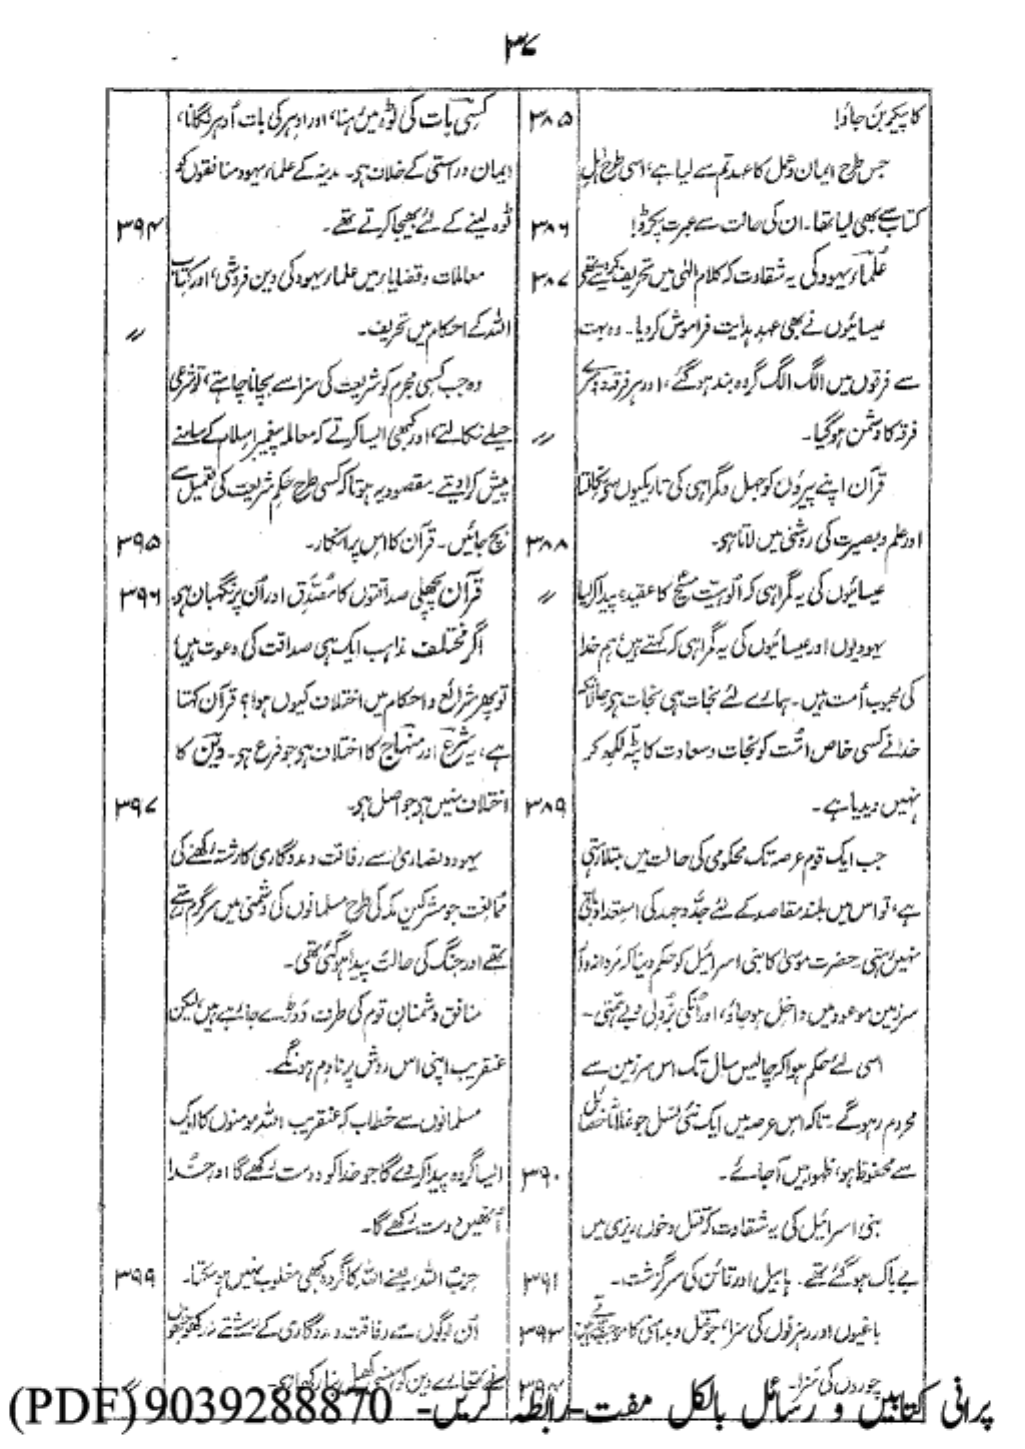 ۳۷
کا پیکر بن جاؤ! ۳۸۵
جس طرح ایمان و عمل کا عہد تم سے لیا ہے، اسی طرح اہل
کتاب سے بھی لیا تھا۔ ان کی حالت سے عبرت پکڑو! ۳۸۶
علماء یہود کی یہ شقاوت کہ کلام الٰہی میں تحریف کر دیتے تھے ۳۸۷
عیسائیوں نے بھی عہد ہدایت فراموش کر دیا۔ وہ بہت
سے فرقوں میں الگ الگ گروہ بند ہو گئے، اور ہر فرقہ دوسرے
فرقہ کا دشمن ہو گیا۔ 〃
قرآن اپنے پیروؤں کو جہل و گمراہی کی تاریکیوں سے نکالتا
اور علم و بصیرت کی روشنی میں لاتا ہے۔ ۳۸۸
عیسائیوں کی یہ گمراہی کہ الوہیت مسیح کا عقیدہ پیدا کر لیا 〃
یہودیوں اور عیسائیوں کی یہ گمراہی کہ کہتے ہیں، ہم خدا
کی محبوب اُمت ہیں۔ ہمارے لئے نجات ہی نجات ہے، حالانکہ
خدا نے کسی خاص امت کو نجات و سعادت کا پٹہ لکھ کر
نہیں دیدیا ہے۔ ۳۸۹
جب ایک قوم عرصہ تک محکومی کی حالت میں مبتلا رہتی
ہے، تو اس میں بلند مقاصد کے لئے جدوجہد کی استعداد باقی
نہیں رہتی۔ حضرت موسیٰ کا بنی اسرائیل کو حکم دینا کہ مردانہ وار
سرزمین موعود میں داخل ہو جاؤ، اور اُنکی بزدلی و بے ہمتی۔
اسی لئے حکم ہوا کہ چالیس سال تک اس سرزمین سے
محروم رہو گے۔ تاکہ اس عرصہ میں ایک نئی نسل جو غلامانہ خصائل
سے محفوظ ہو، ظہور میں آجائے۔ ۳۹۰
بنی اسرائیل کی یہ شقاوت کہ قتل و خوں ریزی میں
بے باک ہو گئے تھے۔ ہابیل اور قائن کی سرگزشت۔ ۳۹۱
باغیوں اور رہزنوں کی سزا، جو قتل و بدامنی کا موجب ہوتے ہیں ۳۹۳
چوروں کی سزا۔
کسی بات کی ٹوہ میں رہنا، اور ادھر کی بات اُدھر لگانا،
ایمان و راستی کے خلاف ہے۔ مدینہ کے علماء یہود منافقوں کو
ٹوہ لینے کے لئے بھیجا کرتے تھے۔ ۳۹۴
معاملات و قضایا میں علماء یہود کی دین فروشی، اور کتاب
اللہ کے احکام میں تحریف۔ 〃
وہ جب کسی مجرم کو شریعت کی سزا سے بچانا چاہتے، تو شرعی
حیلے نکالتے، اور کبھی ایسا کرتے کہ معاملہ پیغمبر اسلام کے سامنے
پیش کرا دیتے۔ مقصود یہ ہوتا کہ کسی طرح حکم شریعت کی تعمیل سے
بچ جائیں۔ قرآن کا اس پر انکار۔ ۳۹۵
قرآن پچھلی صداقتوں کا مُصدِّق اور اُن پر نگہبان ہے۔ ۳۹۶
اگر مختلف مذاہب ایک ہی صداقت کی دعوت ہیں،
تو پھر شرائع و احکام میں اختلاف کیوں ہوا؟ قرآن کہتا
ہے، یہ شرع اور منہاج کا اختلاف ہے جو فرع ہے۔ دین کا
اختلاف نہیں ہے جو اصل ہے۔ ۳۹۷
یہود و نصاریٰ سے رفاقت و مددگاری کا رشتہ رکھنے کی
ممانعت جو مشرکین مکہ کی طرح مسلمانوں کی دشمنی میں سرگرم رہتے
تھے اور جنگ کی حالت پیدا ہو گئی تھی۔
منافق دشمنان قوم کی طرف دوڑے جاتے ہیں، لیکن
عنقریب اپنی اس روش پر نادم ہونگے۔
مسلمانوں سے خطاب کہ عنقریب اللہ مومنوں کا ایک
ایسا گروہ پیدا کر دے گا جو خدا کو دوست رکھے گا اور خدا
اُنھیں دوست رکھے گا۔
حزب اللہ یعنے اللہ کا گروہ کبھی مغلوب نہیں ہو سکتا۔ ۳۹۹
اُن لوگوں سے رفاقت و مددگاری کے رشتے نہ رکھو جنھوں
نے تمہارے دین کو ہنسی کھیل بنا رکھا ہے۔
پرانی کتابیں و رسائل بالکل مفت۔رابطہ کریں۔ 9039288870 (PDF)